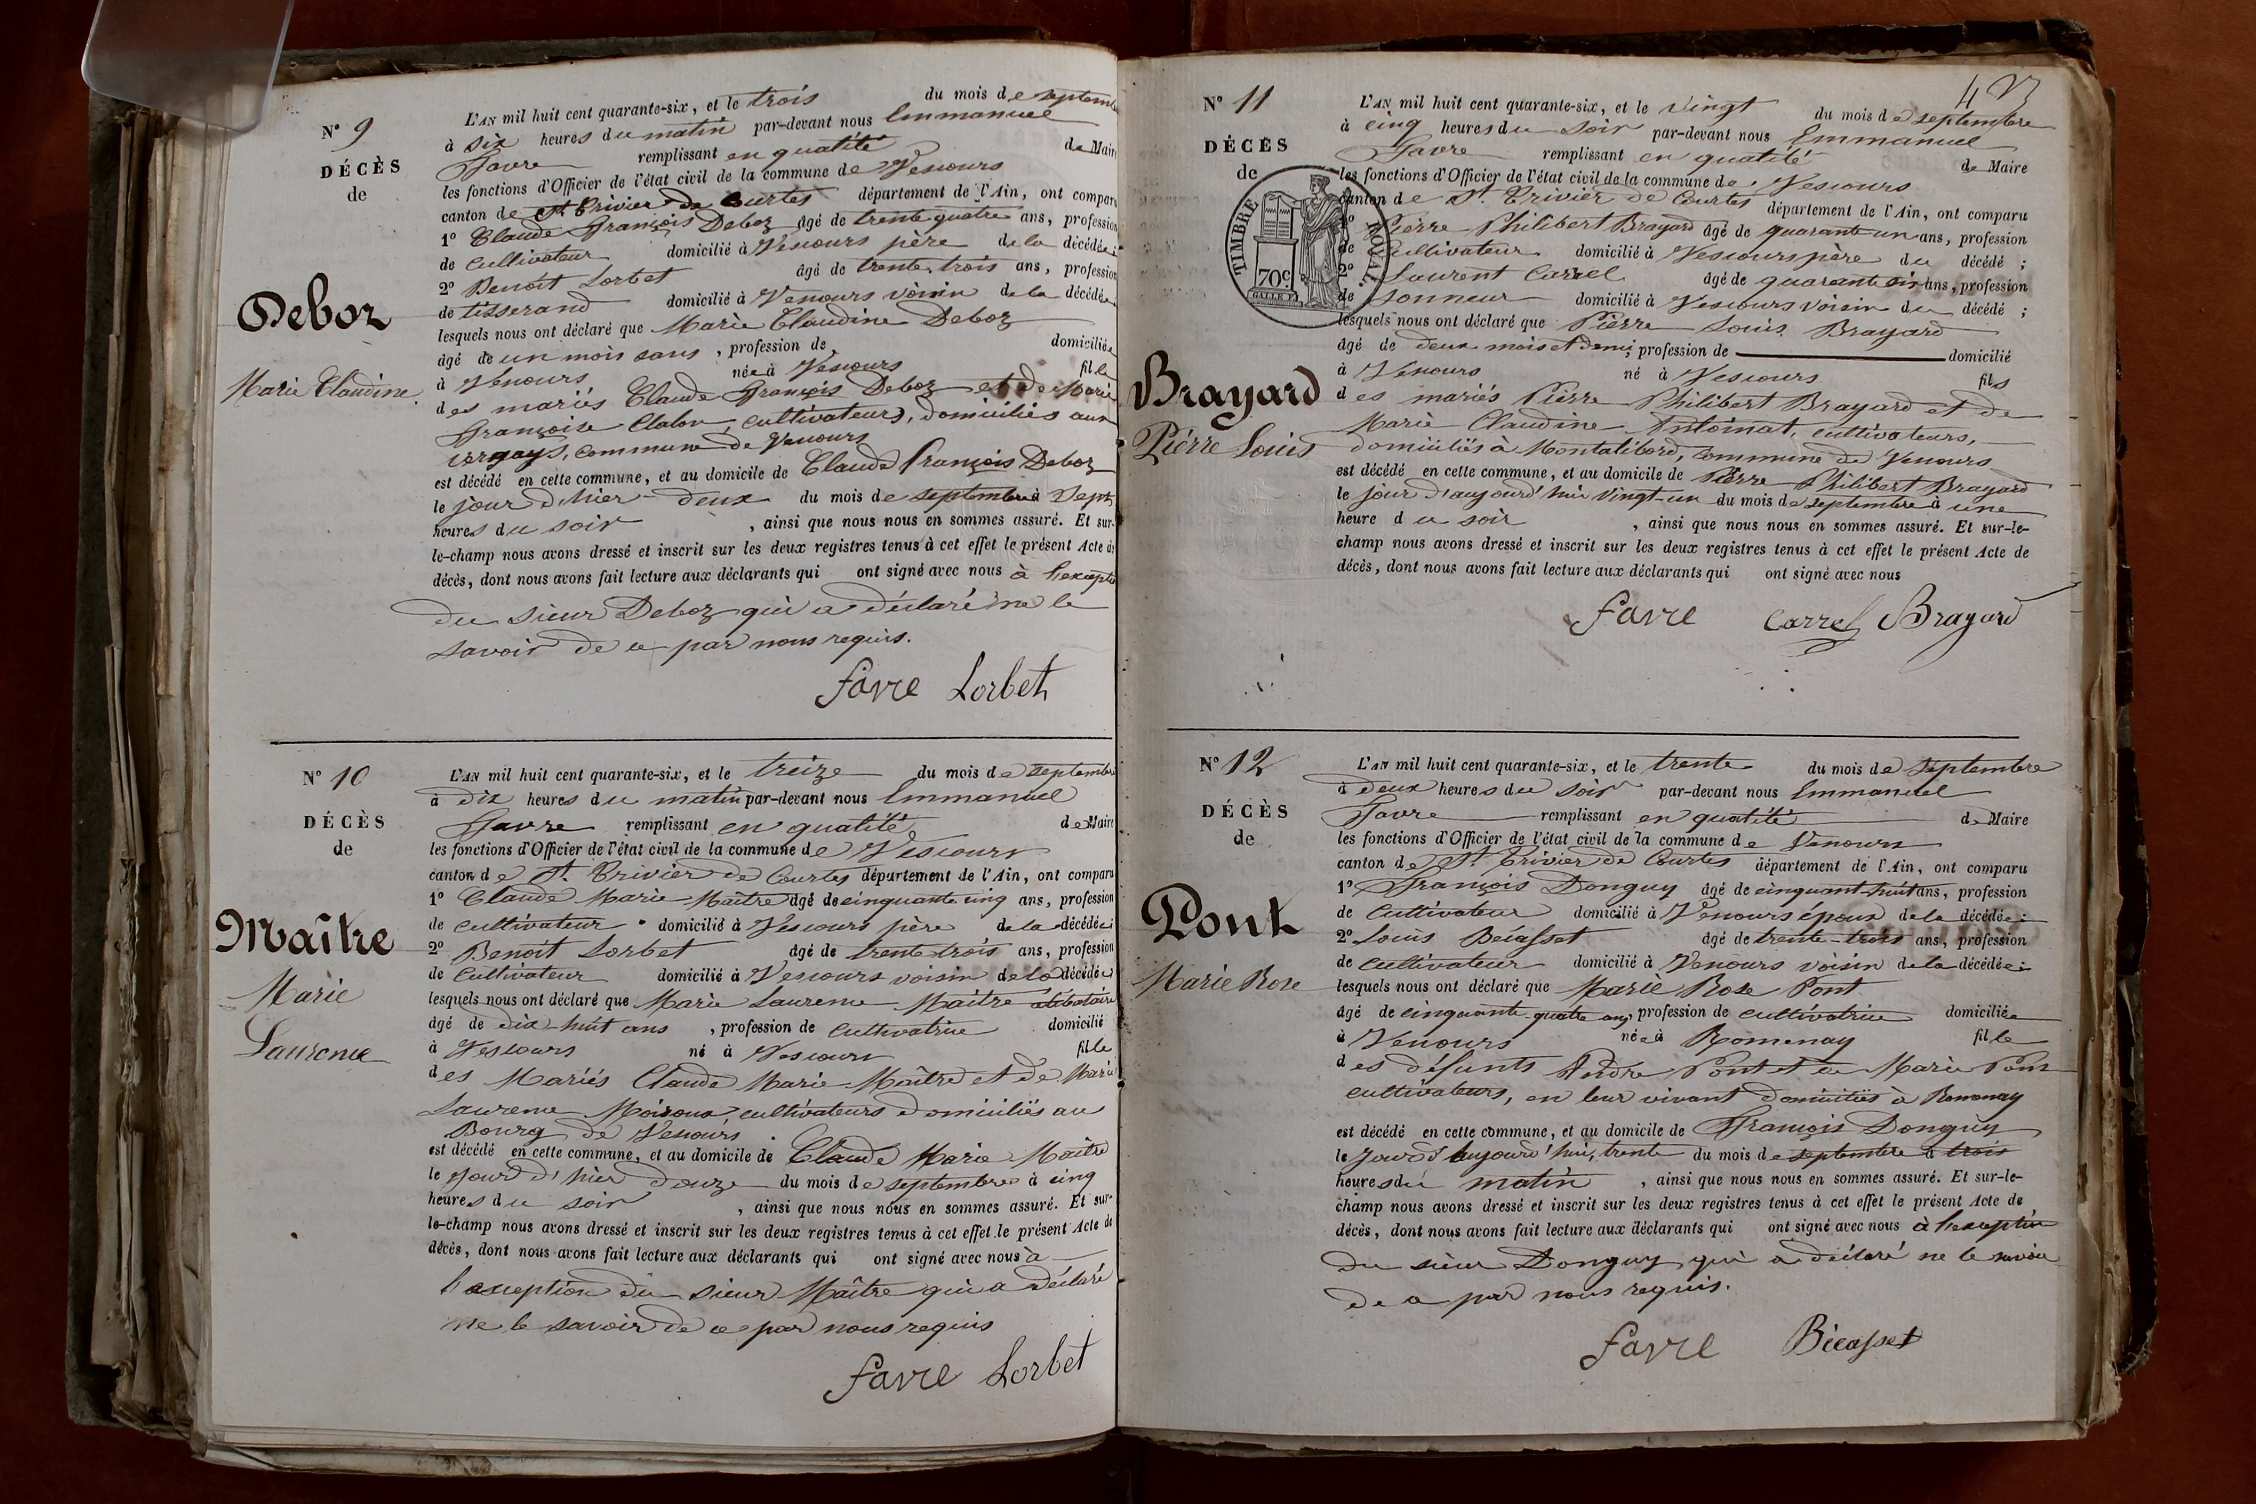 N° 9
DÉCÈS
de
Deboz
Marie Claudine
L'AN mil huit cent quarante-six, et le trois du mois de septembre
à six heures du matin par-devant nous Emmanuel
Favre remplissant en qualité de Maire
les fonctions d'Officier de l'état civil de la commune de Vescours
canton de St Trivier de Courtes département de l'Ain, ont comparu
1° Claude François Deboz âgé de trente quatre ans, profession
de cultivateur domicilié à Vescours père de la décédée;
2° Benoit Lorbet âgé de trente trois ans, profession
de tisserand domicilié à Vescours voisin de la décédée
lesquels nous ont déclaré que Marie Claudine Deboz
âgé de un mois sans, profession de domiciliée
à Vescours née à Vescours fille
des mariés Claude François Deboz et de Marie
Françoise cultivateurs, domiciliés aux
commune de Vescours
est décédé en cette commune, et au domicile de Claude François Deboz
le jour d'hier deux du mois de septembre à sept
heures du soir, ainsi que nous nous en sommes assuré. Et sur-
le-champ nous avons dressé et inscrit sur les deux registres tenus à cet effet le présent Acte de
décès, dont nous avons fait lecture aux déclarants qui ont signé avec nous à l'exception
du sieur Deboz qui a déclaré ne le
savoir de ce par nous requis.
Favre Lorbet
N° 10
DÉCÈS
de
Maître
Marie
Laurence
L'AN mil huit cent quarante-six, et le treize du mois de septembre
à dix heures du matin par-devant nous Emmanuel
Favre remplissant en qualité de Maire
les fonctions d'Officier de l'état civil de la commune de Vescours
canton de St Trivier de Courtes département de l'Ain, ont comparu
1° Claude Marie Maître âgé de cinquante cinq ans, profession
de cultivateur domicilié à Vescours père de la décédée;
2° Benoit Lorbet âgé de trente trois ans, profession
de cultivateur domicilié à Vescours voisin de la décédée
lesquels nous ont déclaré que Marie Laurence Maître célibataire
âgé de dix-huit ans, profession de cultivatrice domicilié
à Vescours né à Vescours fille
des Mariés Claude Marie Maître et de Marie
Laurence cultivateurs domiciliés au
Bourg de Vescours
est décédé en cette commune, et au domicile de Claude Marie Maître
le jour d'hier douze du mois de septembre à cinq
heures du soir, ainsi que nous nous en sommes assuré. Et sur-
le-champ nous avons dressé et inscrit sur les deux registres tenus à cet effet le présent Acte de
décès, dont nous avons fait lecture aux déclarants qui ont signé avec nous à
l'exception du sieur Maître qui a déclaré
ne le savoir de ce par nous requis
Favre Lorbet
N° 11
DÉCÈS
de
TIMBRE ROYAL.
70c
Brayard
Pierre Louis
L'AN mil huit cent quarante-six, et le vingt du mois de septembre
à cinq heures du soir par-devant nous Emmanuel
Favre remplissant en qualité de Maire
les fonctions d'Officier de l'état civil de la commune de Vescours
canton de St Trivier de Courtes département de l'Ain, ont comparu
1° Pierre Philibert Brayard âgé de quarante un ans, profession
de cultivateur domicilié à Vescours père du décédé;
2° Laurent Carrel âgé de quarante six ans, profession
de sonneur domicilié à Vescours voisin du décédé;
lesquels nous ont déclaré que Pierre Louis Brayard
âgé de deux mois et demi, profession de domicilié
à Vescours né à Vescours fils
des mariés Pierre Philibert Brayard et de
Marie Claudine Antoinat, cultivateurs,
domiciliés à Montalibord, commune de Vescours
est décédé en cette commune, et au domicile de Pierre Philibert Brayard
le jour d'aujourd'hui vingt-un du mois de septembre à une
heure du soir, ainsi que nous nous en sommes assuré. Et sur-le-
champ nous avons dressé et inscrit sur les deux registres tenus à cet effet le présent Acte de
décès, dont nous avons fait lecture aux déclarants qui ont signé avec nous
Favre Carrel Brayard
N° 12
DÉCÈS
de
Pont
Marie Rose
L'AN mil huit cent quarante-six, et le trente du mois de septembre
à deux heures du soir par-devant nous Emmanuel
Favre remplissant en qualité de Maire
les fonctions d'Officier de l'état civil de la commune de Vescours
canton de St Trivier de Courtes département de l'Ain, ont comparu
1° François Donguy âgé de cinquant-huit ans, profession
de cultivateur domicilié à Vescours époux de la décédée;
2° Louis Bécasset âgé de trente-trois ans, profession
de cultivateur domicilié à Vescours voisin de la décédée;
lesquels nous ont déclaré que Marie Rose Pont
âgé de cinquante-quatre ans, profession de cultivatrice domiciliée
à Vescours née à Romenay fille
des défunts André Pont et de Marie Pont
cultivateurs, en leur vivant domiciliés à Romenay
est décédé en cette commune, et au domicile de François Donguy
le jour d'aujourd'hui, trente du mois de septembre à trois
heures du matin, ainsi que nous nous en sommes assuré. Et sur-le-
champ nous avons dressé et inscrit sur les deux registres tenus à cet effet le présent Acte de
décès, dont nous avons fait lecture aux déclarants qui ont signé avec nous à l'exception
du sieur Donguy qui a déclaré ne le savoir
de ce par nous requis.
Favre Bécasset